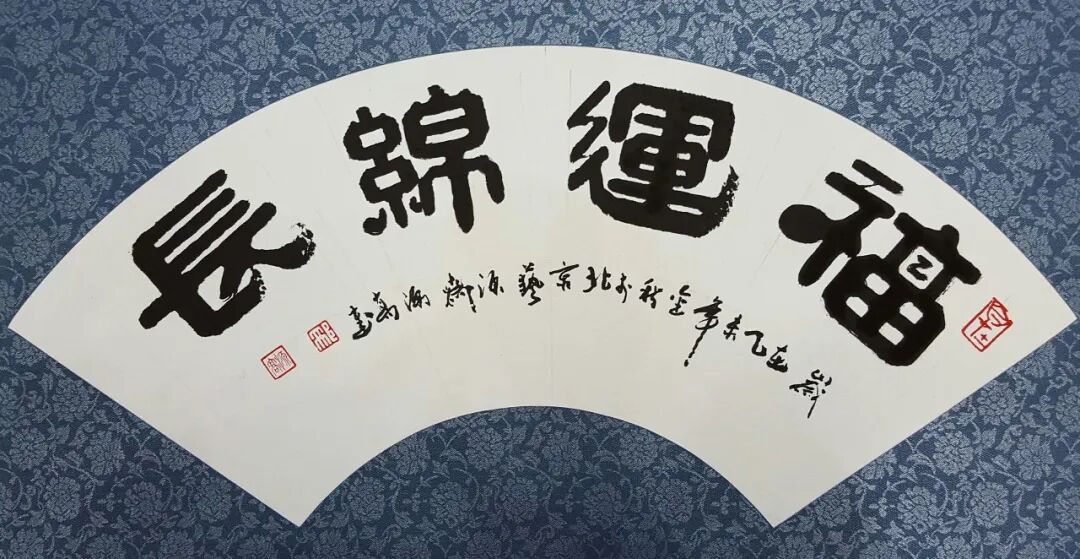 福運綿長
歲在乙未年金秋於北京藝源